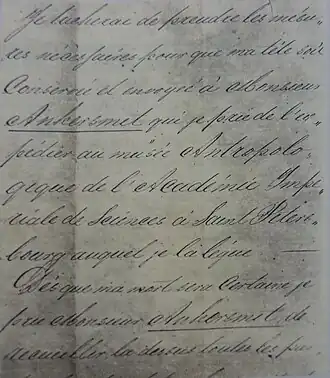 Je tacherai de prendre les mésu-
res nécéssaires pour que ma tête soit
Conservée et envoyée à Monsieur
Ankersmit que je prie de l'ex-
pédier au musée Antropolo-
gique de l'Académie Impé-
riale de Sciences à Saint Péters-
bourg auquel je la lègue. —
Dès que ma mort sera certaine je
prie Monsieur Ankersmit, de
recueiller la dessus toutes les